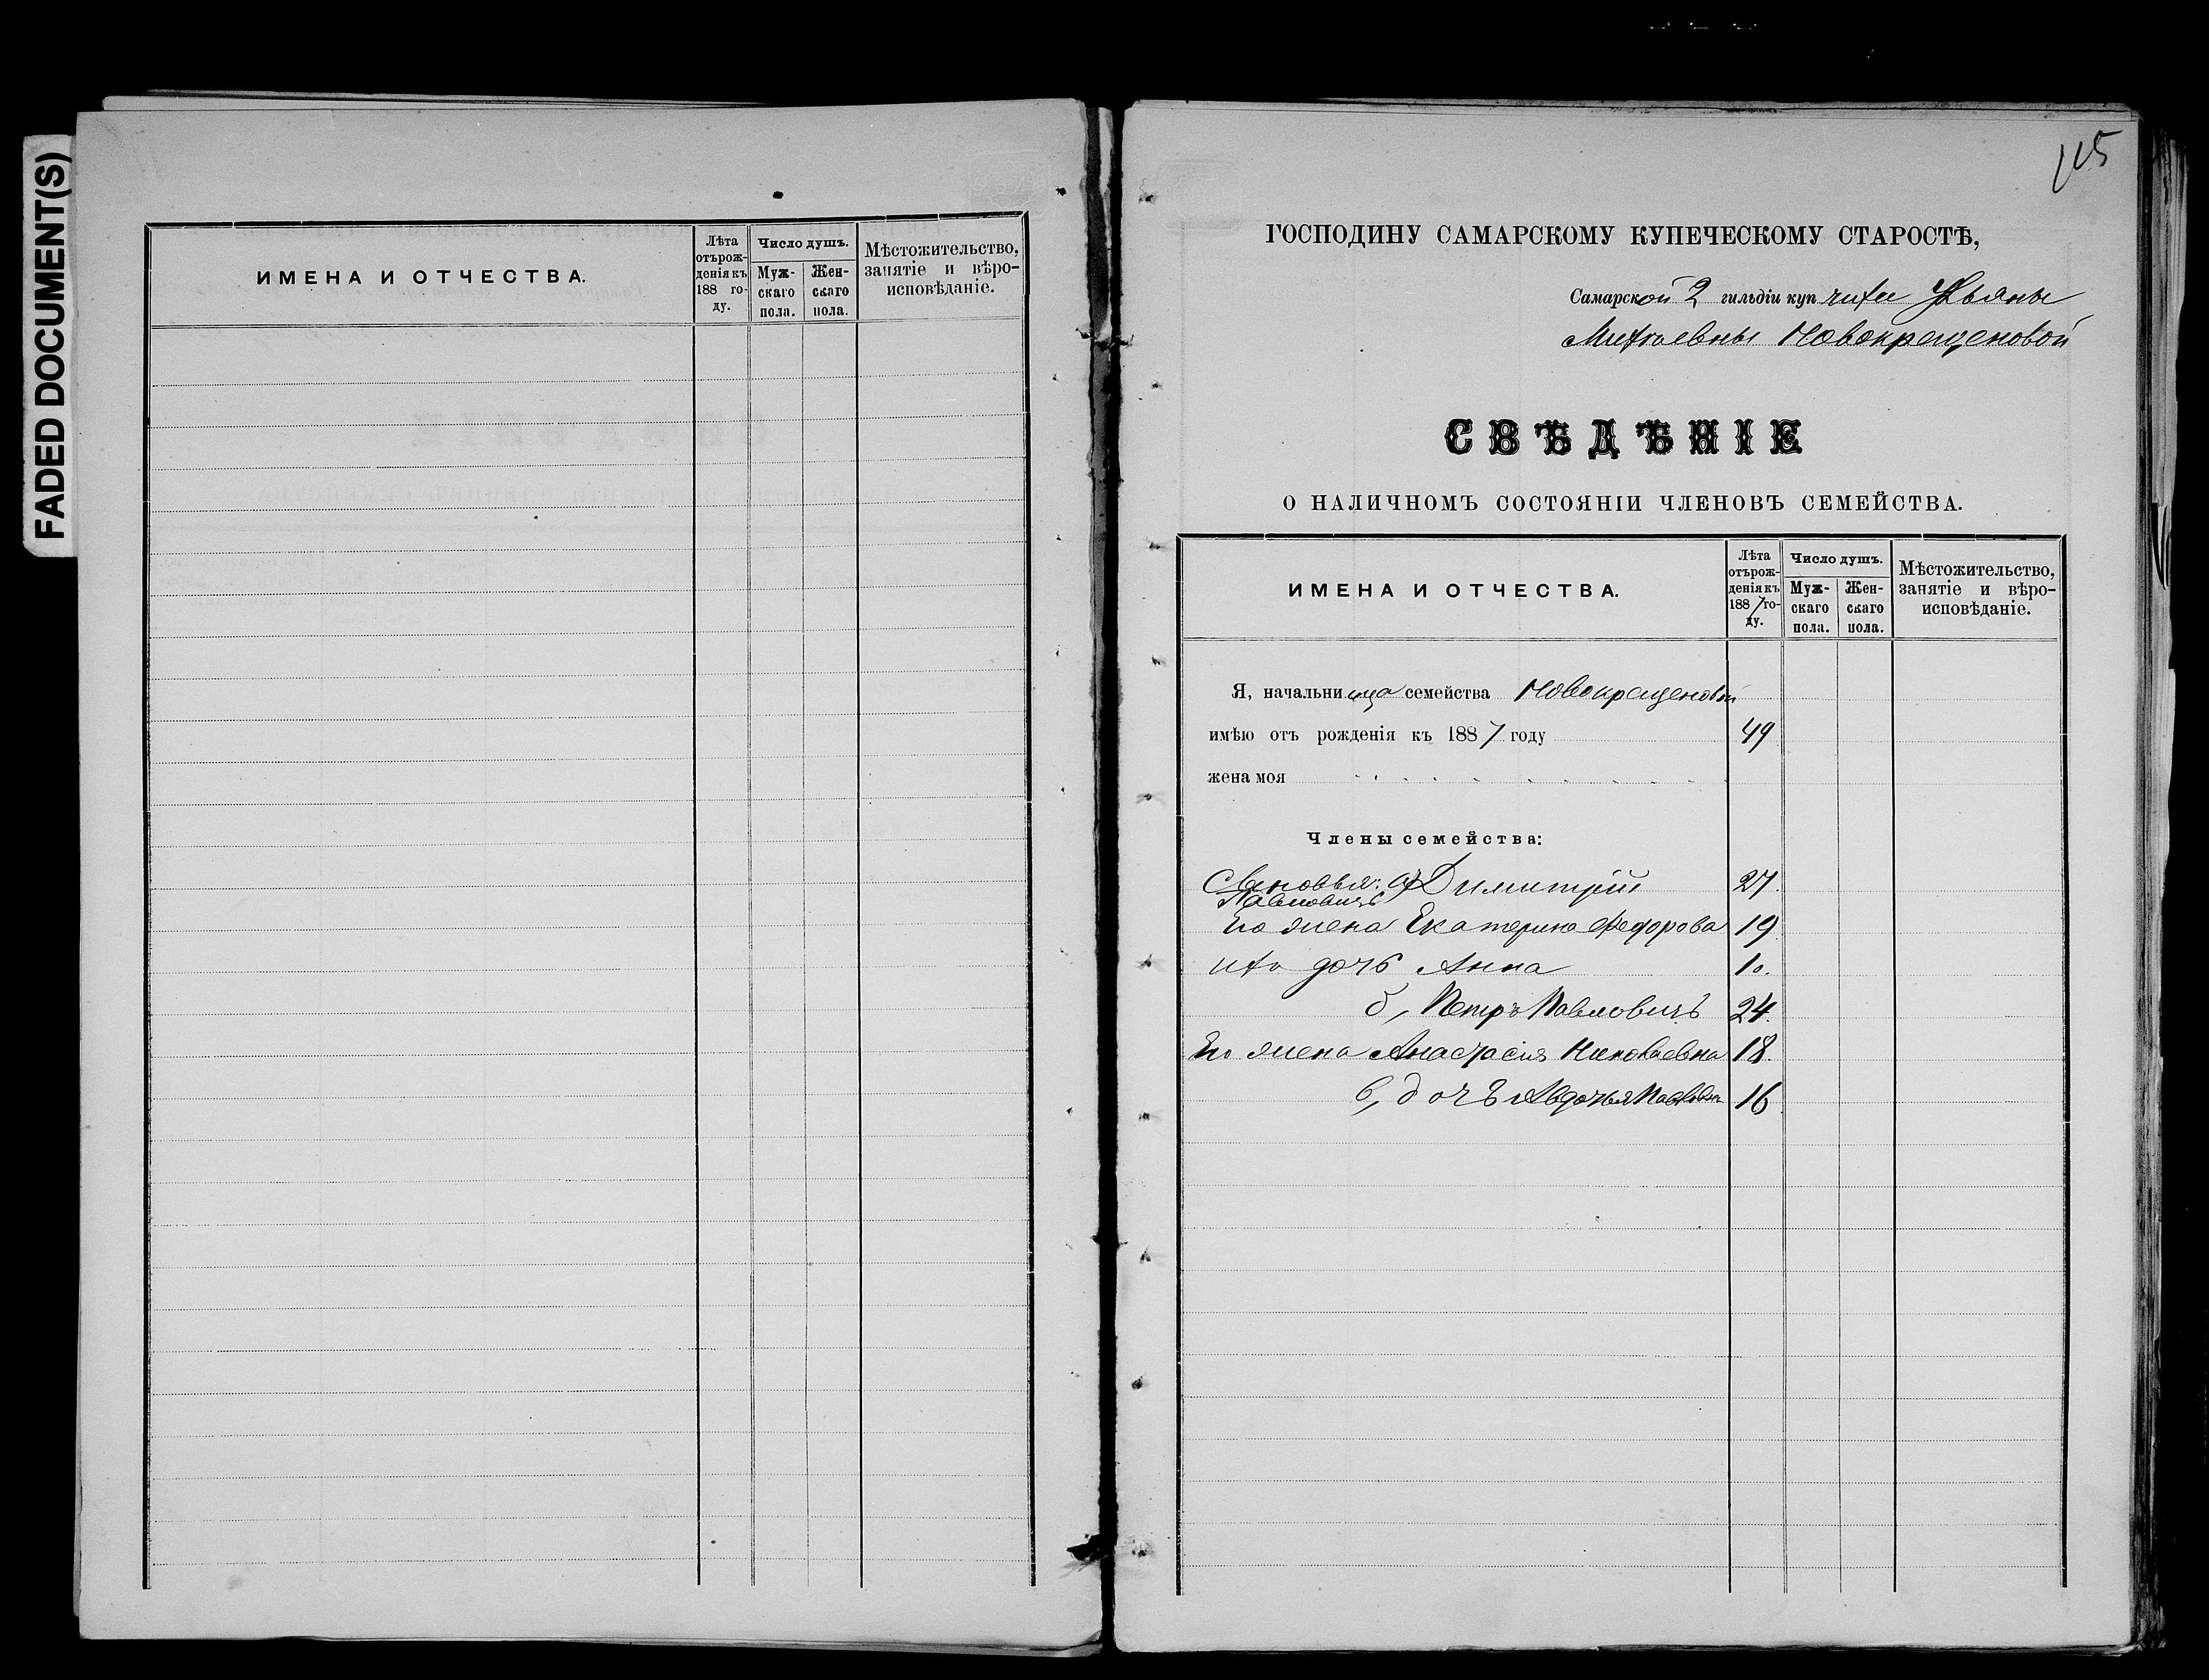 FADED DOCUMENT(S)
ИМЕНА И ОТЧЕСТВА.
Лѣта отърожденія къ 188 году.
Число душъ.
Мужскаго пола.
Женскаго пола.
Мѣстожительство, занятіе и вѣроисповѣданіе.
115
ГОСПОДИНУ САМАРСКОМУ КУПЕЧЕСКОМУ СТАРОСТѢ,
Самарской 2 гильдіи купчихи Ульяны
Новокрещеновой
СВѢДѢНІЕ
О НАЛИЧНОМЪ СОСТОЯНІИ ЧЛЕНОВЪ СЕМЕЙСТВА.
ИМЕНА И ОТЧЕСТВА.
Лѣта отърожденія къ 1887 году.
Число душъ.
Мужскаго пола.
Женскаго пола.
Мѣстожительство, занятіе и вѣроисповѣданіе.
Я, начальница семейства Новокрещеновой
имѣю отъ рожденія къ 1887 году 49
жена моя
Члены семейства:
Сыновья: а) Димитрій 27.
Павловичъ
Его жена Екатерина Федорова 19
ихъ дочь Анна
б, Петръ Павловичъ 24.
Его жена Анастасія Николаевна 18.
в, дочь Авдотья Павловна 16